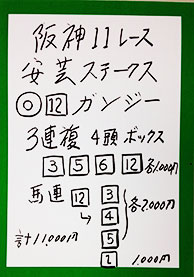 阪神11レース
安芸ステークス
◎12ガンジー
3連複 4頭ボックス
3 5 6 12 各1,000円
馬連 12→3
4 各2,000円
5
2 1,000円
計11,000円